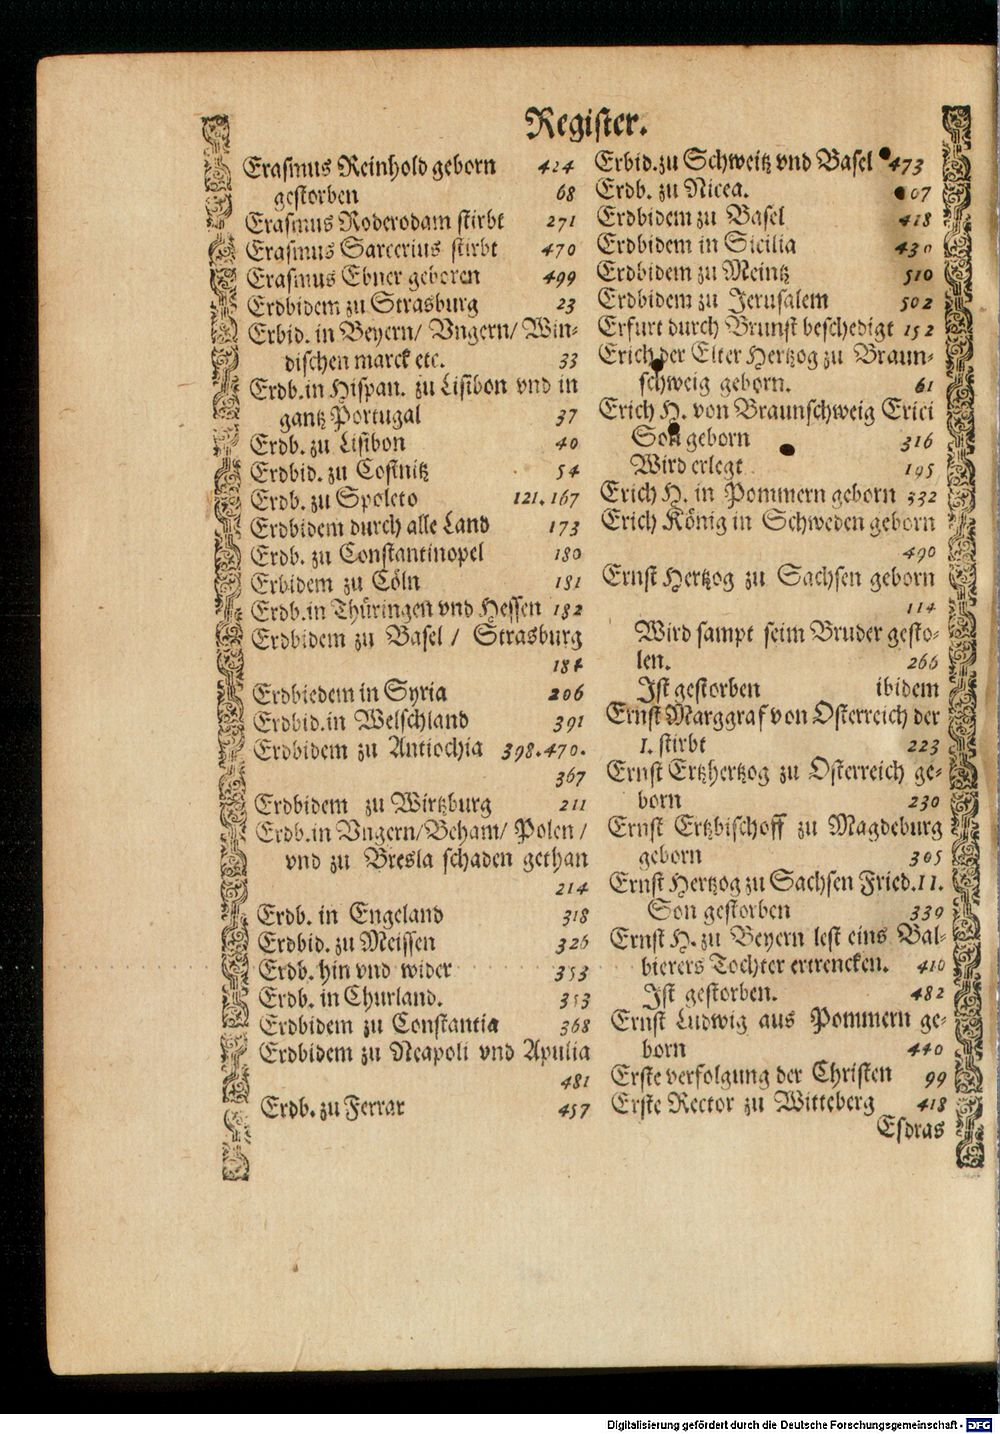 Register.
Erasmus Reinhold geborn 424
gestorben 68
Erasmus Roderodam stirbt 271
Erasmus Sarcerius stirbt 470
Erasmus Ebner geboren 499
Erdbidem zu Strasburg 23
Erbid. in Beyern/ Vngern/ Win-
dischen marck etc. 33
Erdb. in Hispan. zu Lisibon vnd in
gantz Portugal 37
Erdb. zu Lisibon 40
Erdbid. zu Costnitz 54
Erdb. zu Spoleto 121.167
Erdbidem durch alle Land 173
Erdb. zu Constantinopel 180
Erbidem zu Cöln 181
Erdb. in Thüringen vnd Hessen 182
Erdbidem zu Basel / Strasburg
Erdbiedem in Syria 206
Erdbid. in Welschland 391
Erdbidem zu Antiochia 398.470.
367
Erdbidem zu Wirtzburg 211
Erdb. in Vngern/Beham/ Polen /
vnd zu Bresla schaden gethan
214
Erdb. in Engeland 318
Erdbid. zu Meissen 326
Erdb. hin vnd wider 353
Erdb. in Churland. 353
Erdbidem zu Constantia 368
Erdbidem zu Neapoli vnd Apulia
481
Erdb. zu Ferrar 457
Erbid. zu Schweitz vnd Basel 473
Erdb. zu Nicea.
Erdbidem zu Basel 418
Erdbidem in Sicilia 430
Erdbidem zu Meintz 510
Erdbidem zu Jerusalem 502
Erfurt durch Brunst beschedigt 152
Erich der Elter Hertzog zu Braun-
schweig geborn. 61
Erich H. von Braunschweig Erici
Son geborn 316
Wird erlegt 195
Erich H. in Pommern geborn 332
Erich König in Schweden geborn
490
Ernst Hertzog zu Sachsen geborn
114
Wird sampt seim Bruder gesto-
len. 266
Ist gestorben ibidem
Ernst Marggraf von Osterreich der
1. stirbt 223
Ernst Ertzhertzog zu Osterreich ge-
born 230
Ernst Ertzbischoff zu Magdeburg
geborn 305
Ernst Hertzog zu Sachsen Fried. II.
Son gestorben 339
Ernst H. zu Beyern lest eins Bal-
bierers Tochter ertrencken. 410
Ist gestorben. 482
Ernst Ludwig aus Pommern ge-
born 440
Erste verfolgung der Christen 99
Erste Rector zu Witteberg 418
Esdras
Digitalisierung gefördert durch die Deutsche Forschungsgemeinschaft - DFG